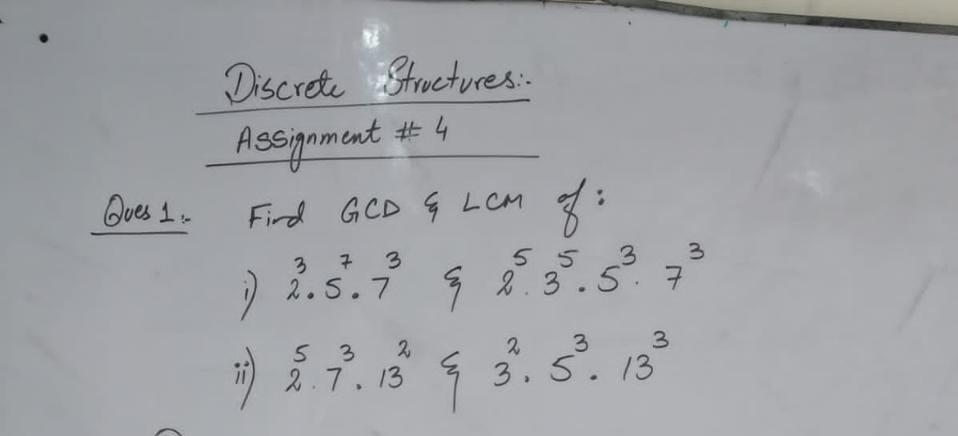 Discrete Structures:-
Assignment # 4
Ques 1:- Find GCD & LCM of:
i) 2³.5⁷.7³ & 2⁵.3⁵.5³.7³
ii) 2⁵.7³.13² & 3².5³.13³